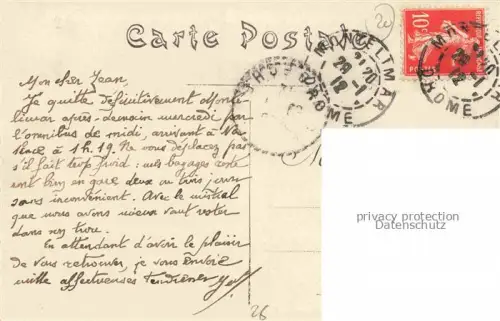 Carte Postale
20
10c
MONTELIMAR
20
29-1
12
DROME
DROME
Mon cher Jean,
Je quitte définitivement Monté-
limar après-demain mercredi par
l'omnibus de midi, arrivant à Va-
lence à 1h.19. Ne vous déplacez pas
s'il fait trop froid : mes bagages
bien en gare deux ou trois jours
sans inconvénient. Avec le mistral
que nous avons mieux vaut rester
dans son
En attendant d'avoir le plaisir
de vous retrouver, je vous envoie
mille affectueuses tendresses
26
privacy protection
Datenschutz